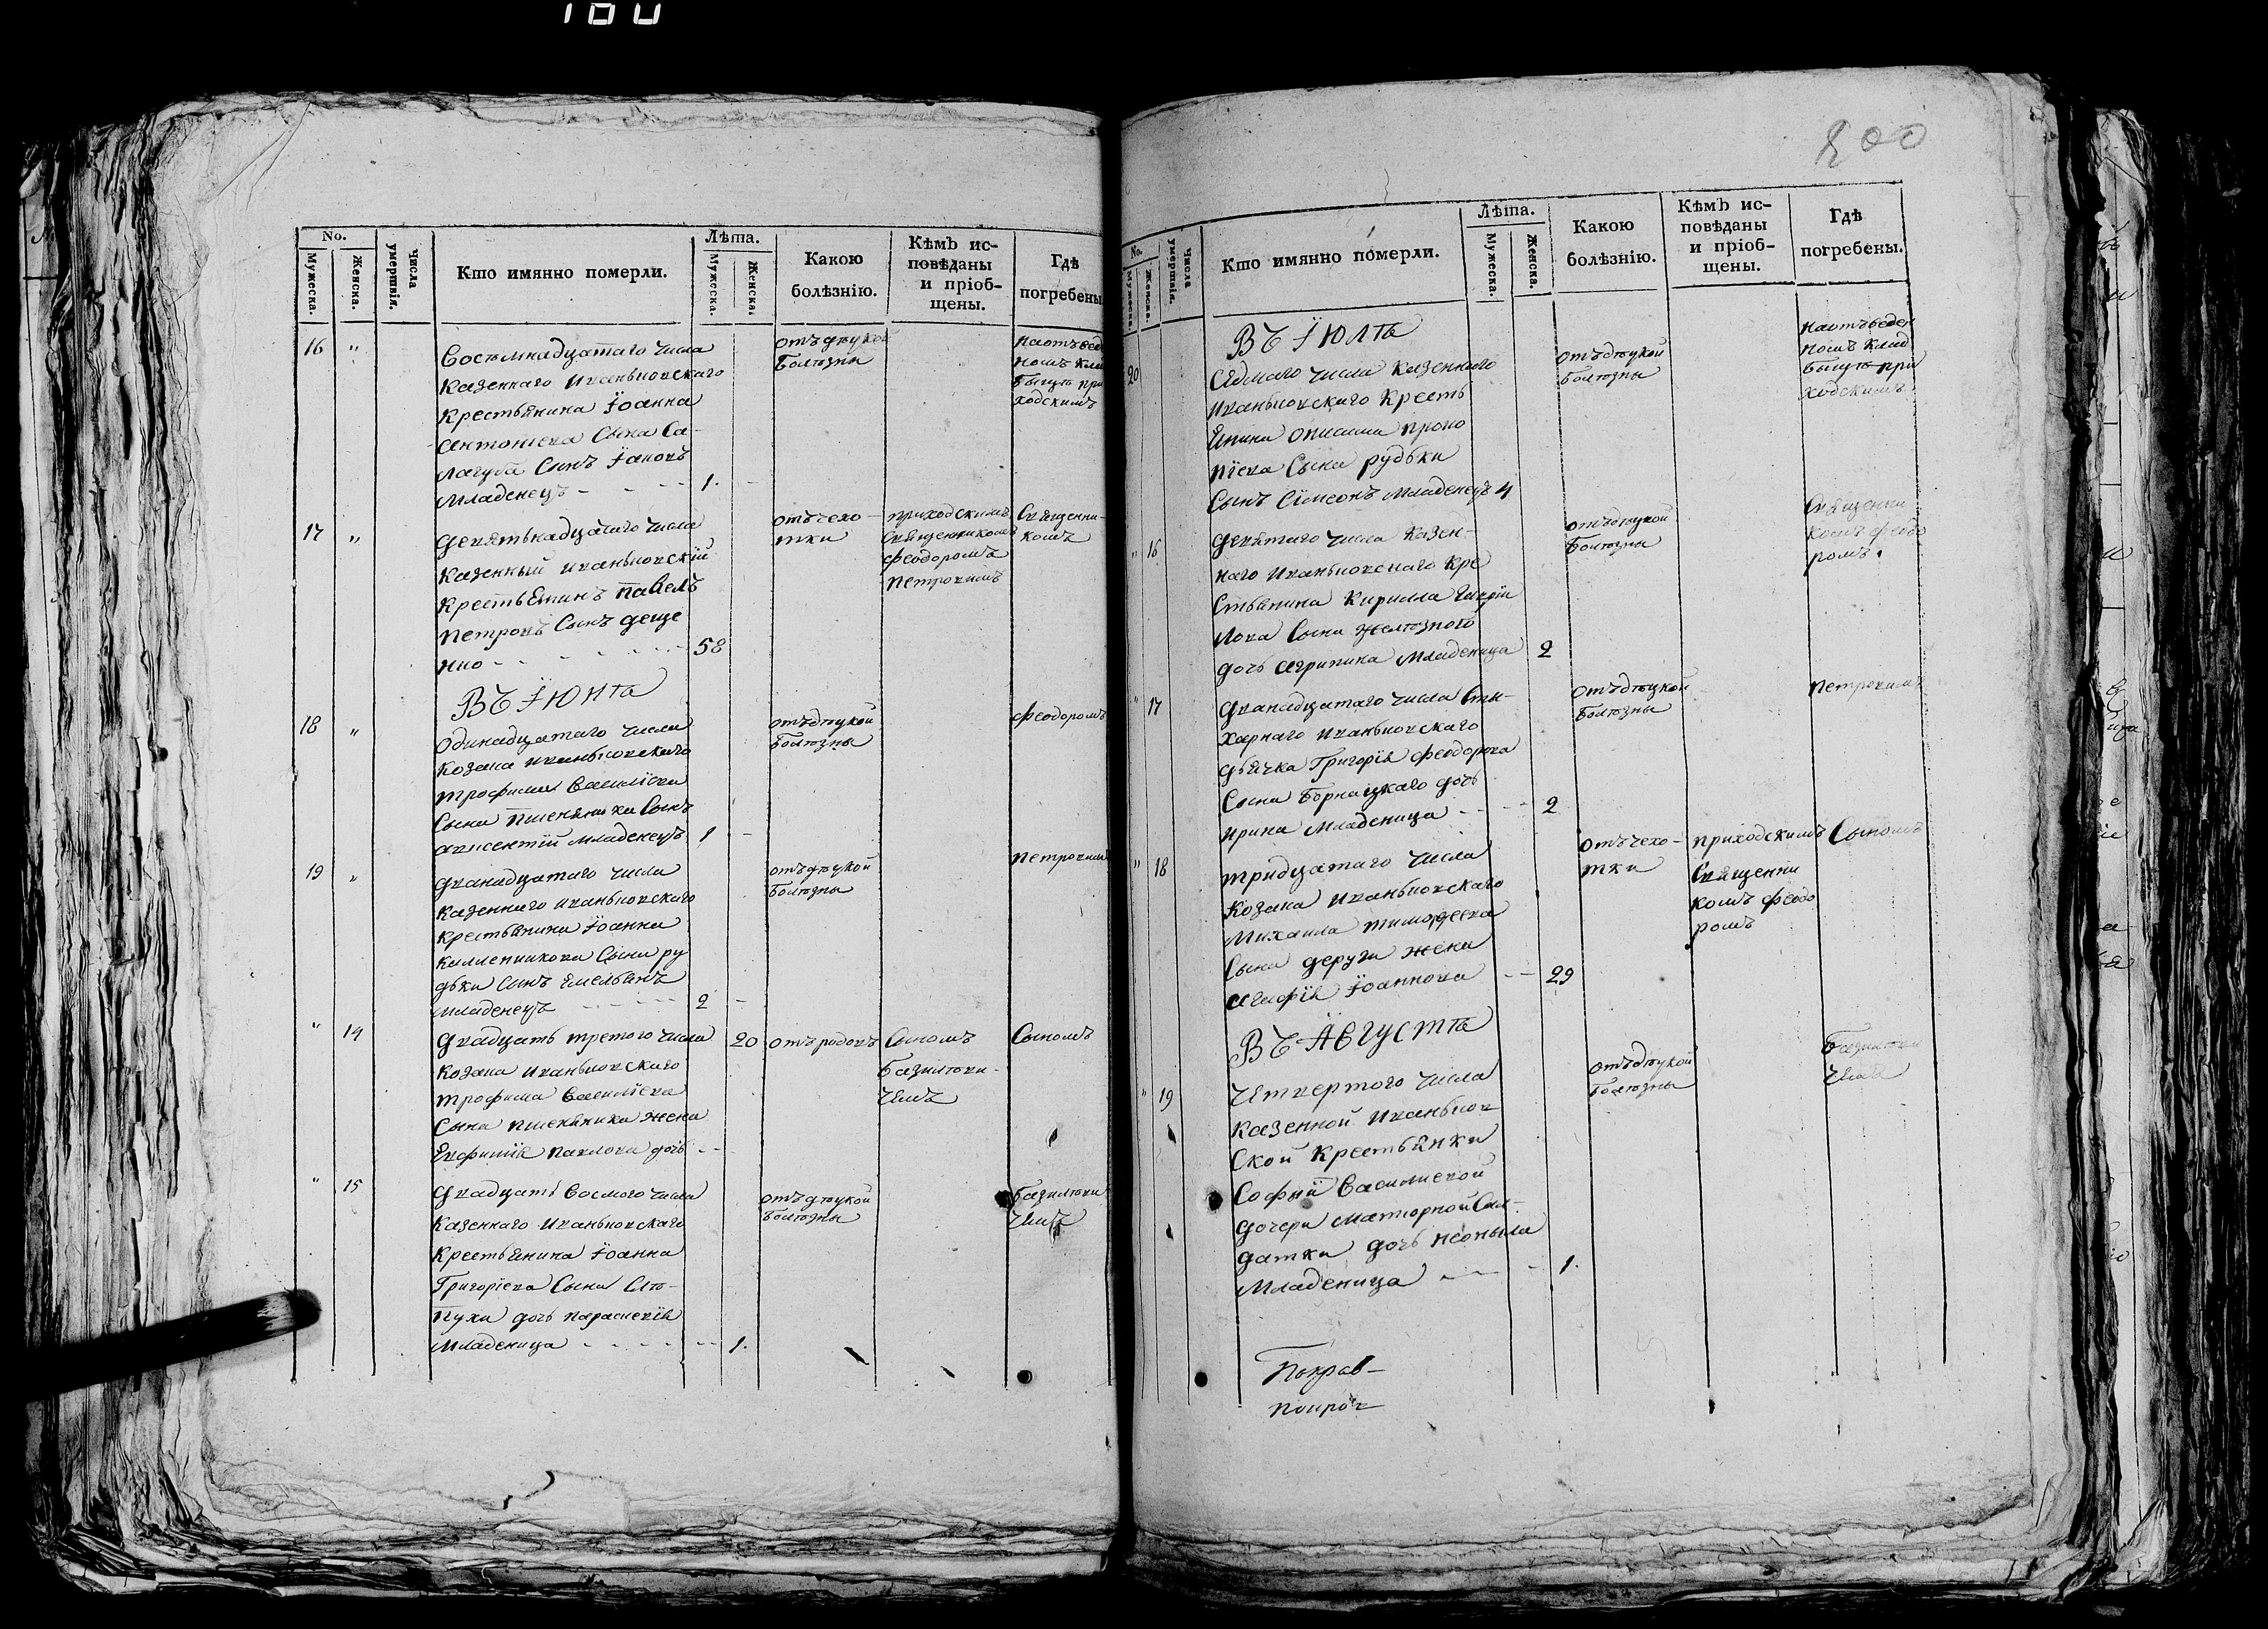 160
200
No.
Мужеска.
Женска.
Числа умертвія.
Кто имянно померли.
Лѣта.
Мужеска.
Женска.
Какою болѣзнію.
Кѣмъ исповѣданы и пріобщены.
Гдѣ погребены.
16 "
Восемнадцатаго числа
казеннаго иваньковскаго
крестьянина Їоанна
Антоніева сына Са-
лагуба сынъ Їаковъ
младенецъ - - - - 1.
отъ дѣцкой
болѣзны
на отъведен
номъ клад
бищѣ при
ходскимъ
17 "
Девятьнадцатаго числа
казенный иваньковскій
крестьянинъ павелъ
петровъ сынъ деще
нко - - - - - - 58
отъ чехо-
тки
приходскимъ
священникомъ
феодоромъ
петровимъ
священни-
комъ
ВЪ ЇЮНѢ
18 "
Одинадцатаго числа
козака иваньковскаго
трофима василїева
сына пшеняника сынъ
авксентїй младенецъ 1 -
отъ дѣцкой
болѣзны
феодоромъ
19 "
Дванадцатаго числа
казеннаго иваньковскаго
крестьянина Їоанна
каллениикова сына ру
дьки сынъ Емельянъ
младенецъ - - - - 2 -
отъ дѣцкой
болѣзны
петровимъ
" 14
Двадцать третого числа 20
козака иваньковскаго
трофима василїева
сына пшеняника жена
Евфимїя павлова дочь - -
отъ родовъ
сыномъ
базилѣви-
чемъ
сыномъ
" 15
Двадцать восмого числа
казеннаго иваньковскаго
крестьянина Їоанна
Григорїева сына Слѣ-
пухи дочь параскевїя
младеница - - - - - 1.
отъ дѣцкой
болѣзны
базилѣви
чемъ
No.
Мужеска.
Женска.
Числа умертвія.
Кто имянно померли.
Лѣта.
Мужеска.
Женска.
Какою болѣзнію.
Кѣмъ исповѣданы и пріобщены.
Гдѣ погребены.
ВЪ ЇЮЛѢ
20
Седмаго числа казеннаго
иваньковскаго кресть
янина онисима проко
пїева сына рудьки
сынъ Сїмеонъ младенецъ 4
отъ дѣцкой
болѣзны
на отъведен
номъ клад
бищѣ при
ходскимъ
" 16
Девятаго числа казен-
наго иваньковскаго кре
стьянина кирилла гаврїи
лова сына желѣзного
дочь агрипина младеница 2
отъ дѣцкой
болѣзны
священни
комъ феодо
ромъ.
" 17
Дванадцатаго числа
харнаго иваньковскаго
дьячка Григорїя феодорова
сына Борнацкаго дочь
ирина младеница - - - 2
отъ дѣцкой
болѣзны
петровимъ
" 18
тридцатаго числа
козака иваньковскаго
михаила тимофеева
сына деруги жена
агафїя Їоаннова - - 29
отъ чехо-
тки
приходскимъ
священни
комъ феодо
ромъ
сыномъ
ВЪ АВГУСТѢ
" 19
Четвертого числа
казенной иваньков
ской крестьянки
софїи василиевой
дочери матюрной сал-
датки дочь неонила
младеница - - - 1.
отъ дѣцкой
болѣзны
базилѣви
чемъ